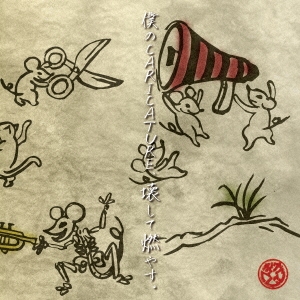 僕のCARICATURE壊して燃やす。